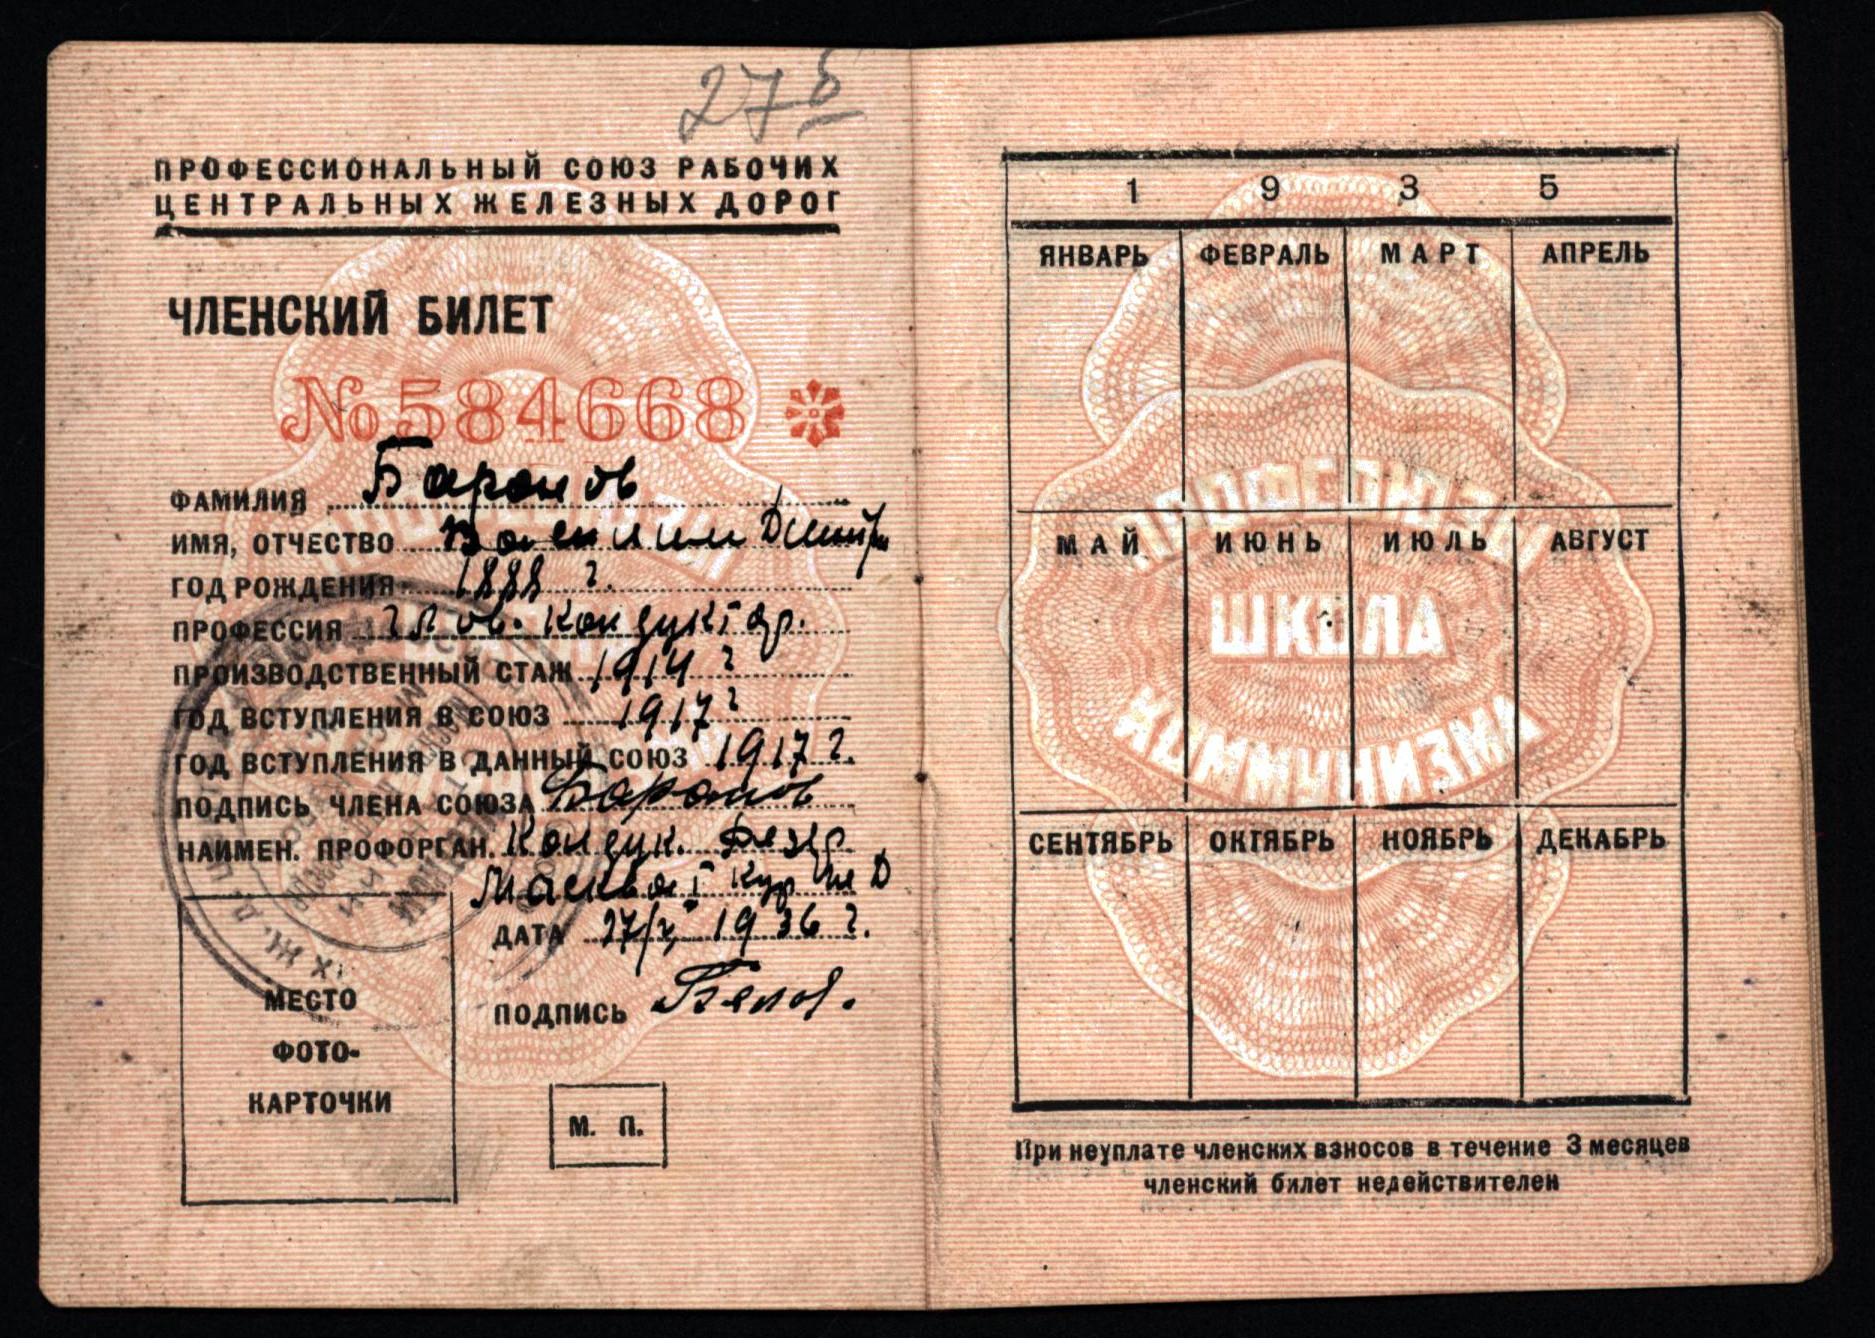 27 б
ПРОФЕССИОНАЛЬНЫЙ СОЮЗ РАБОЧИХ
ЦЕНТРАЛЬНЫХ ЖЕЛЕЗНЫХ ДОРОГ
ЧЛЕНСКИЙ БИЛЕТ
№ 584668
ФАМИЛИЯ Баранов
ИМЯ, ОТЧЕСТВО Василий Дмитр
ГОД РОЖДЕНИЯ 1888 г.
ПРОФЕССИЯ глав. кондуктор.
ПРОИЗВОДСТВЕННЫЙ СТАЖ 1914 г
ГОД ВСТУПЛЕНИЯ В СОЮЗ 1917 г
ГОД ВСТУПЛЕНИЯ В ДАННЫЙ СОЮЗ 1917 г.
ПОДПИСЬ ЧЛЕНА СОЮЗА Баранов
НАИМЕН. ПРОФОРГАН. Кондук. резер
Москва Кур
ДАТА 1936 г.
ПОДПИСЬ
МЕСТО
ФОТО-
КАРТОЧКИ
М. П.
1 9 3 5
ЯНВАРЬ ФЕВРАЛЬ МАРТ АПРЕЛЬ
ПРОФСОЮЗЫ
МАЙ ИЮНЬ ИЮЛЬ АВГУСТ
ШКОЛА
КОММУНИЗМА
СЕНТЯБРЬ ОКТЯБРЬ НОЯБРЬ ДЕКАБРЬ
При неуплате членских взносов в течение 3 месяцев
членский билет недействителен